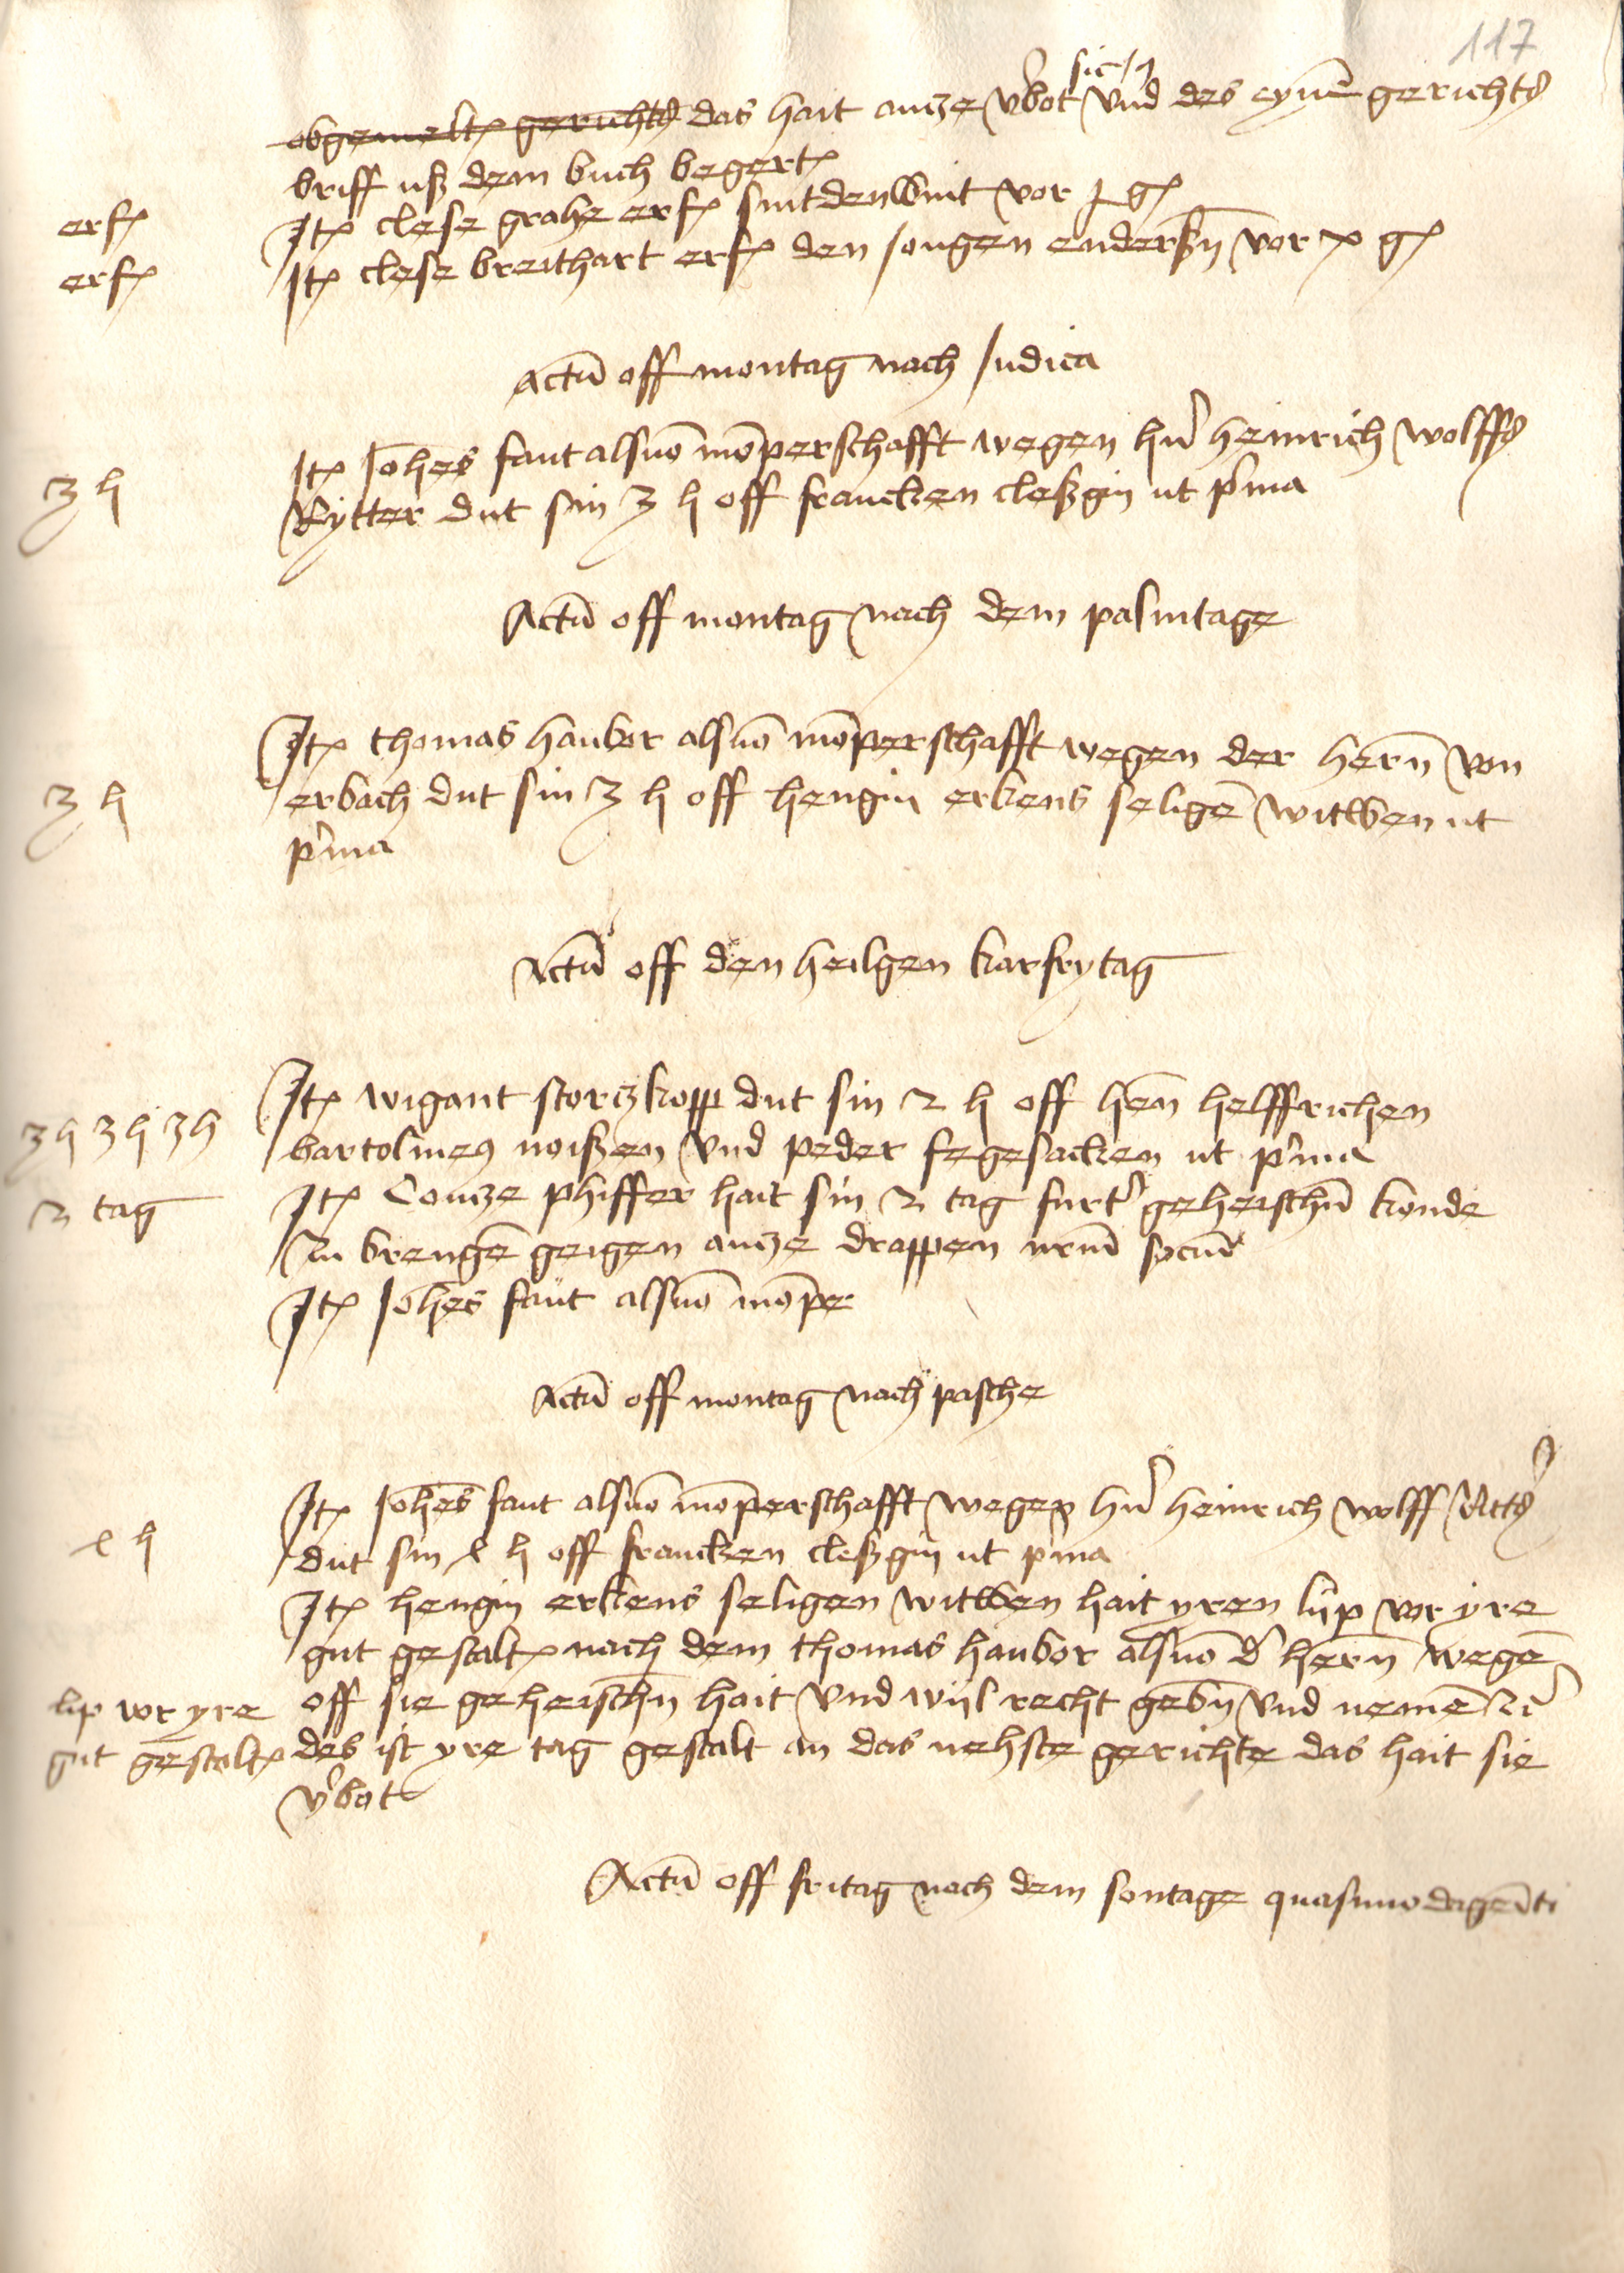 117
sich
obgemelt gerichts das hait ancze v'bot vnd des eynē gerichts
briff uß dem buch begert
erf Itē clese grahe erf suitdenwut vor j gl
erf Itē clese breithart erf den jongen enderßn̄ vor x gl
Actū off montag nach Judica
Itē Joh̄es faut alsuō mōperschafft wegen hn̄ heinrich wolffs
3 h Rytter dut sin 3 h off francken cleßgin ut p̄ma
Actū off montag nach dem palmtage
Itē thomas haubor alsuō mōperschafft wegen der hern̄ von
3 h erbach dut sin 3 h off hengin erkens seligē witwen ut
p̄ma
Actū off den heilgen karfrytag
Itē wigant storczkopp dut sin 2 h off hen̄ helffrichen
3 h 3 h 3 h bartolmeus noißen vnd peder fegesacken ut p̄ma
2 tag Itē Concze phiffer hait sin 2 tag furt' geheischn̄ konde
zu brengē geigen ancze drappen
Itē Joh̄es faut alsuō mōpe
Actū off montag nach pasche
Itē Joh̄es faut alsuō mōperschafft wegen hn̄ heinrich wolff Ritt's
1 h dut sin 1 h off francken cleßgin ut p̄ma
Itē hengin erkens seligen witwen hait yren lijp vor yre
gut gestalt nach dem thomas haubor alsuō d' hern̄ wegē
lip vor yre off sie geheischn̄ hait vnd wijl recht gebn̄ vnd nemē
gut gestalt des ist yre tag gestalt an das nehste gerichte das hait sie
v'bot
Actū off fritag noch dem sontage quasimodogenīti